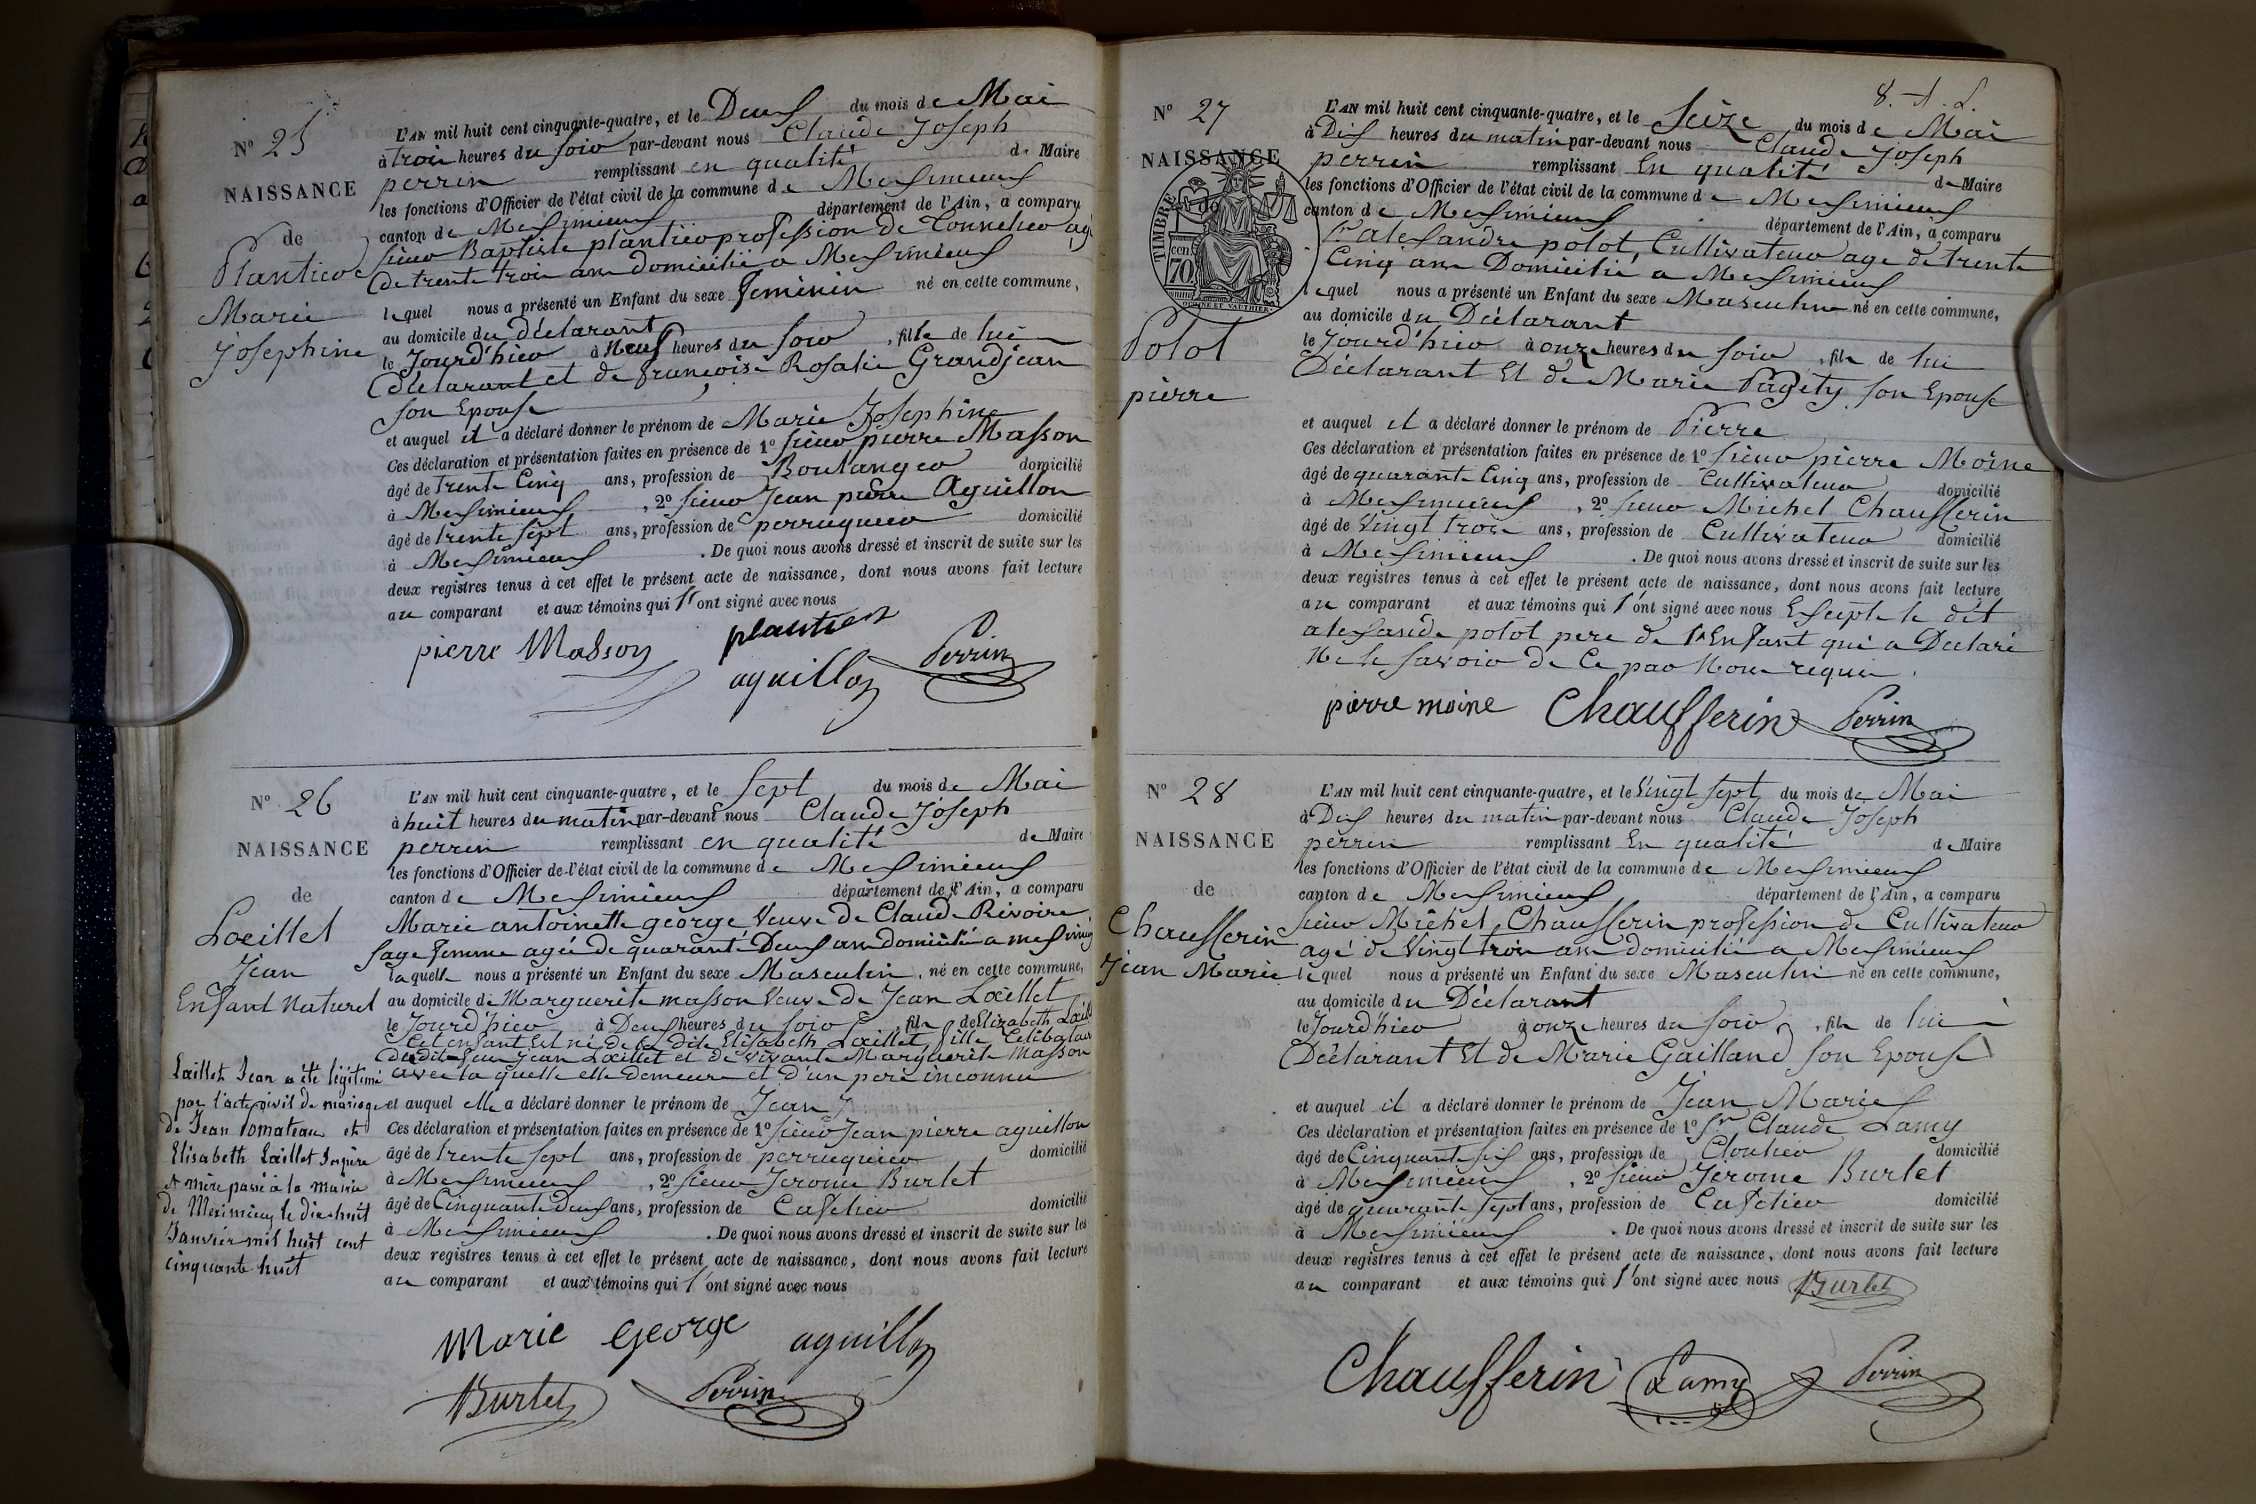 N° 25
NAISSANCE
de
Plantier
Marie
Josephine
L'AN mil huit cent cinquante-quatre, et le Deux du mois de Mai
à trois heures du soir par-devant nous Claude Joseph
perrin remplissant en qualité de Maire
les fonctions d'Officier de l'état civil de la commune de Meximieux
canton de Meximieux département de l'Ain, a comparu
sieur Baptiste plantier profession de Tonnelier agé
de trente trois ans domicilié a Meximieux
lequel nous a présenté un Enfant du sexe feminin né en cette commune,
au domicile du déclarant
le Jourd'hier à Neuf heures du soir, fille de lui
déclarant et de françoise Rosalie Grandjean
son Epouse
et auquel il a déclaré donner le prénom de Marie Josephine
Ces déclaration et présentation faites en présence de 1° sieur pierre Masson
âgé de trente Cinq ans, profession de Boulanger domicilié
à Meximieux, 2° sieur Jean pierre Aguillon
âgé de trente sept ans, profession de perruquier domicilié
à Meximieux. De quoi nous avons dressé et inscrit de suite sur les
deux registres tenus à cet effet le présent acte de naissance, dont nous avons fait lecture
au comparant et aux témoins qui l'ont signé avec nous
pierre Masson plantier
aguillon Perrin
N° 26
NAISSANCE
de
Loeillet
Jean
Enfant Naturel
Laillet Jean a été légitimé
par l'acte civil de mariage
de Jean Pomateau et
Elisabeth Laillet ses père
et mère passé à la mairie
de Meximieux le dix-huit
Janvier mil huit cent
cinquante huit
L'AN mil huit cent cinquante-quatre, et le Sept du mois de Mai
à huit heures du matin par-devant nous Claude Joseph
perrin remplissant en qualité de Maire
les fonctions d'Officier de l'état civil de la commune de Meximieux
canton de Meximieux département de l'Ain, a comparu
Marie antoinette george Veuve de Claude Rivoire
sage femme agé de quarante Deux ans domicilié a meximieux
laquelle nous a présenté un Enfant du sexe Masculin, né en cette commune,
au domicile de Marguerite masson Veuve de Jean Loeillet
le Jourd'hier à Deux heures du soir, fils de Elizabeth Loeillet
Cet enfant est né de la dite Elisabeth Loeillet fille Celibataire
dudit feu Jean Loeillet et de vivante Marguerite Masson
avec la quelle elle demeure et d'un pere inconnu
et auquel elle a déclaré donner le prénom de Jean
Ces déclaration et présentation faites en présence de 1° sieur Jean pierre aguillon
âgé de trente sept ans, profession de perruquier domicilié
à Meximieux, 2° sieur Jerome Burlet
âgé de Cinquante Deux ans, profession de Caffetier domicilié
à Meximieux. De quoi nous avons dressé et inscrit de suite sur les
deux registres tenus à cet effet le présent acte de naissance, dont nous avons fait lecture
au comparant et aux témoins qui l'ont signé avec nous
Marie George aguillon
Burlet Perrin
8.
N° 27
NAISSANCE
TIMBRE
cen 70
Polot
pierre
L'AN mil huit cent cinquante-quatre, et le Seize du mois de Mai
à Dix heures du matin par-devant nous Claude Joseph
perrin remplissant En qualité de Maire
les fonctions d'Officier de l'état civil de la commune de Meximieux
canton de Meximieux département de l'Ain, a comparu
Sr alexandre polot, Cultivateur agé de trente
Cinq ans Domicilié a Meximieux
lequel nous a présenté un Enfant du sexe Masculin né en cette commune,
au domicile du Déclarant
le Jourd'hier à onze heures du soir, fils de lui
Déclarant Et de Marie Pagety son Epouse
et auquel il a déclaré donner le prénom de Pierre
Ces déclaration et présentation faites en présence de 1° sieur pierre Moine
âgé de quarante Cinq ans, profession de Cultivateur domicilié
à Meximieux, 2° sieur Michel Chausserin
âgé de Vingt trois ans, profession de Cultivateur domicilié
à Meximieux. De quoi nous avons dressé et inscrit de suite sur les
deux registres tenus à cet effet le présent acte de naissance, dont nous avons fait lecture
au comparant et aux témoins qui l'ont signé avec nous Excepté le dit
alexandre polot pere de l'Enfant qui a Déclaré
Ne le savoir de Ce par Nous requis.
pierre moine Chaufferin Perrin
N° 28
NAISSANCE
de
Chausserin
Jean Marie
L'AN mil huit cent cinquante-quatre, et le Vingt sept du mois de Mai
à Dix heures du matin par-devant nous Claude Joseph
perrin remplissant En qualité de Maire
les fonctions d'Officier de l'état civil de la commune de Meximieux
canton de Meximieux département de l'Ain, a comparu
sieur Michel Chausserin profession de Cultivateur
agé de Vingt trois ans domicilié a Meximieux
lequel nous a présenté un Enfant du sexe Masculin né en cette commune,
au domicile du Déclarant
le Jourd'hier à onze heures du soir, fils de lui
Déclarant Et de Marie Gailland son Epouse
et auquel il a déclaré donner le prénom de Jean Marie
Ces déclaration et présentation faites en présence de 1° Sr Claude Lamy
âgé de Cinquante six ans, profession de Cloutier domicilié
à Meximieux, 2° sieur Jerome Burlet
âgé de quarante sept ans, profession de Caffetier domicilié
à Meximieux. De quoi nous avons dressé et inscrit de suite sur les
deux registres tenus à cet effet le présent acte de naissance, dont nous avons fait lecture
au comparant et aux témoins qui l'ont signé avec nous Burlet
Chaufferin Lamy Perrin